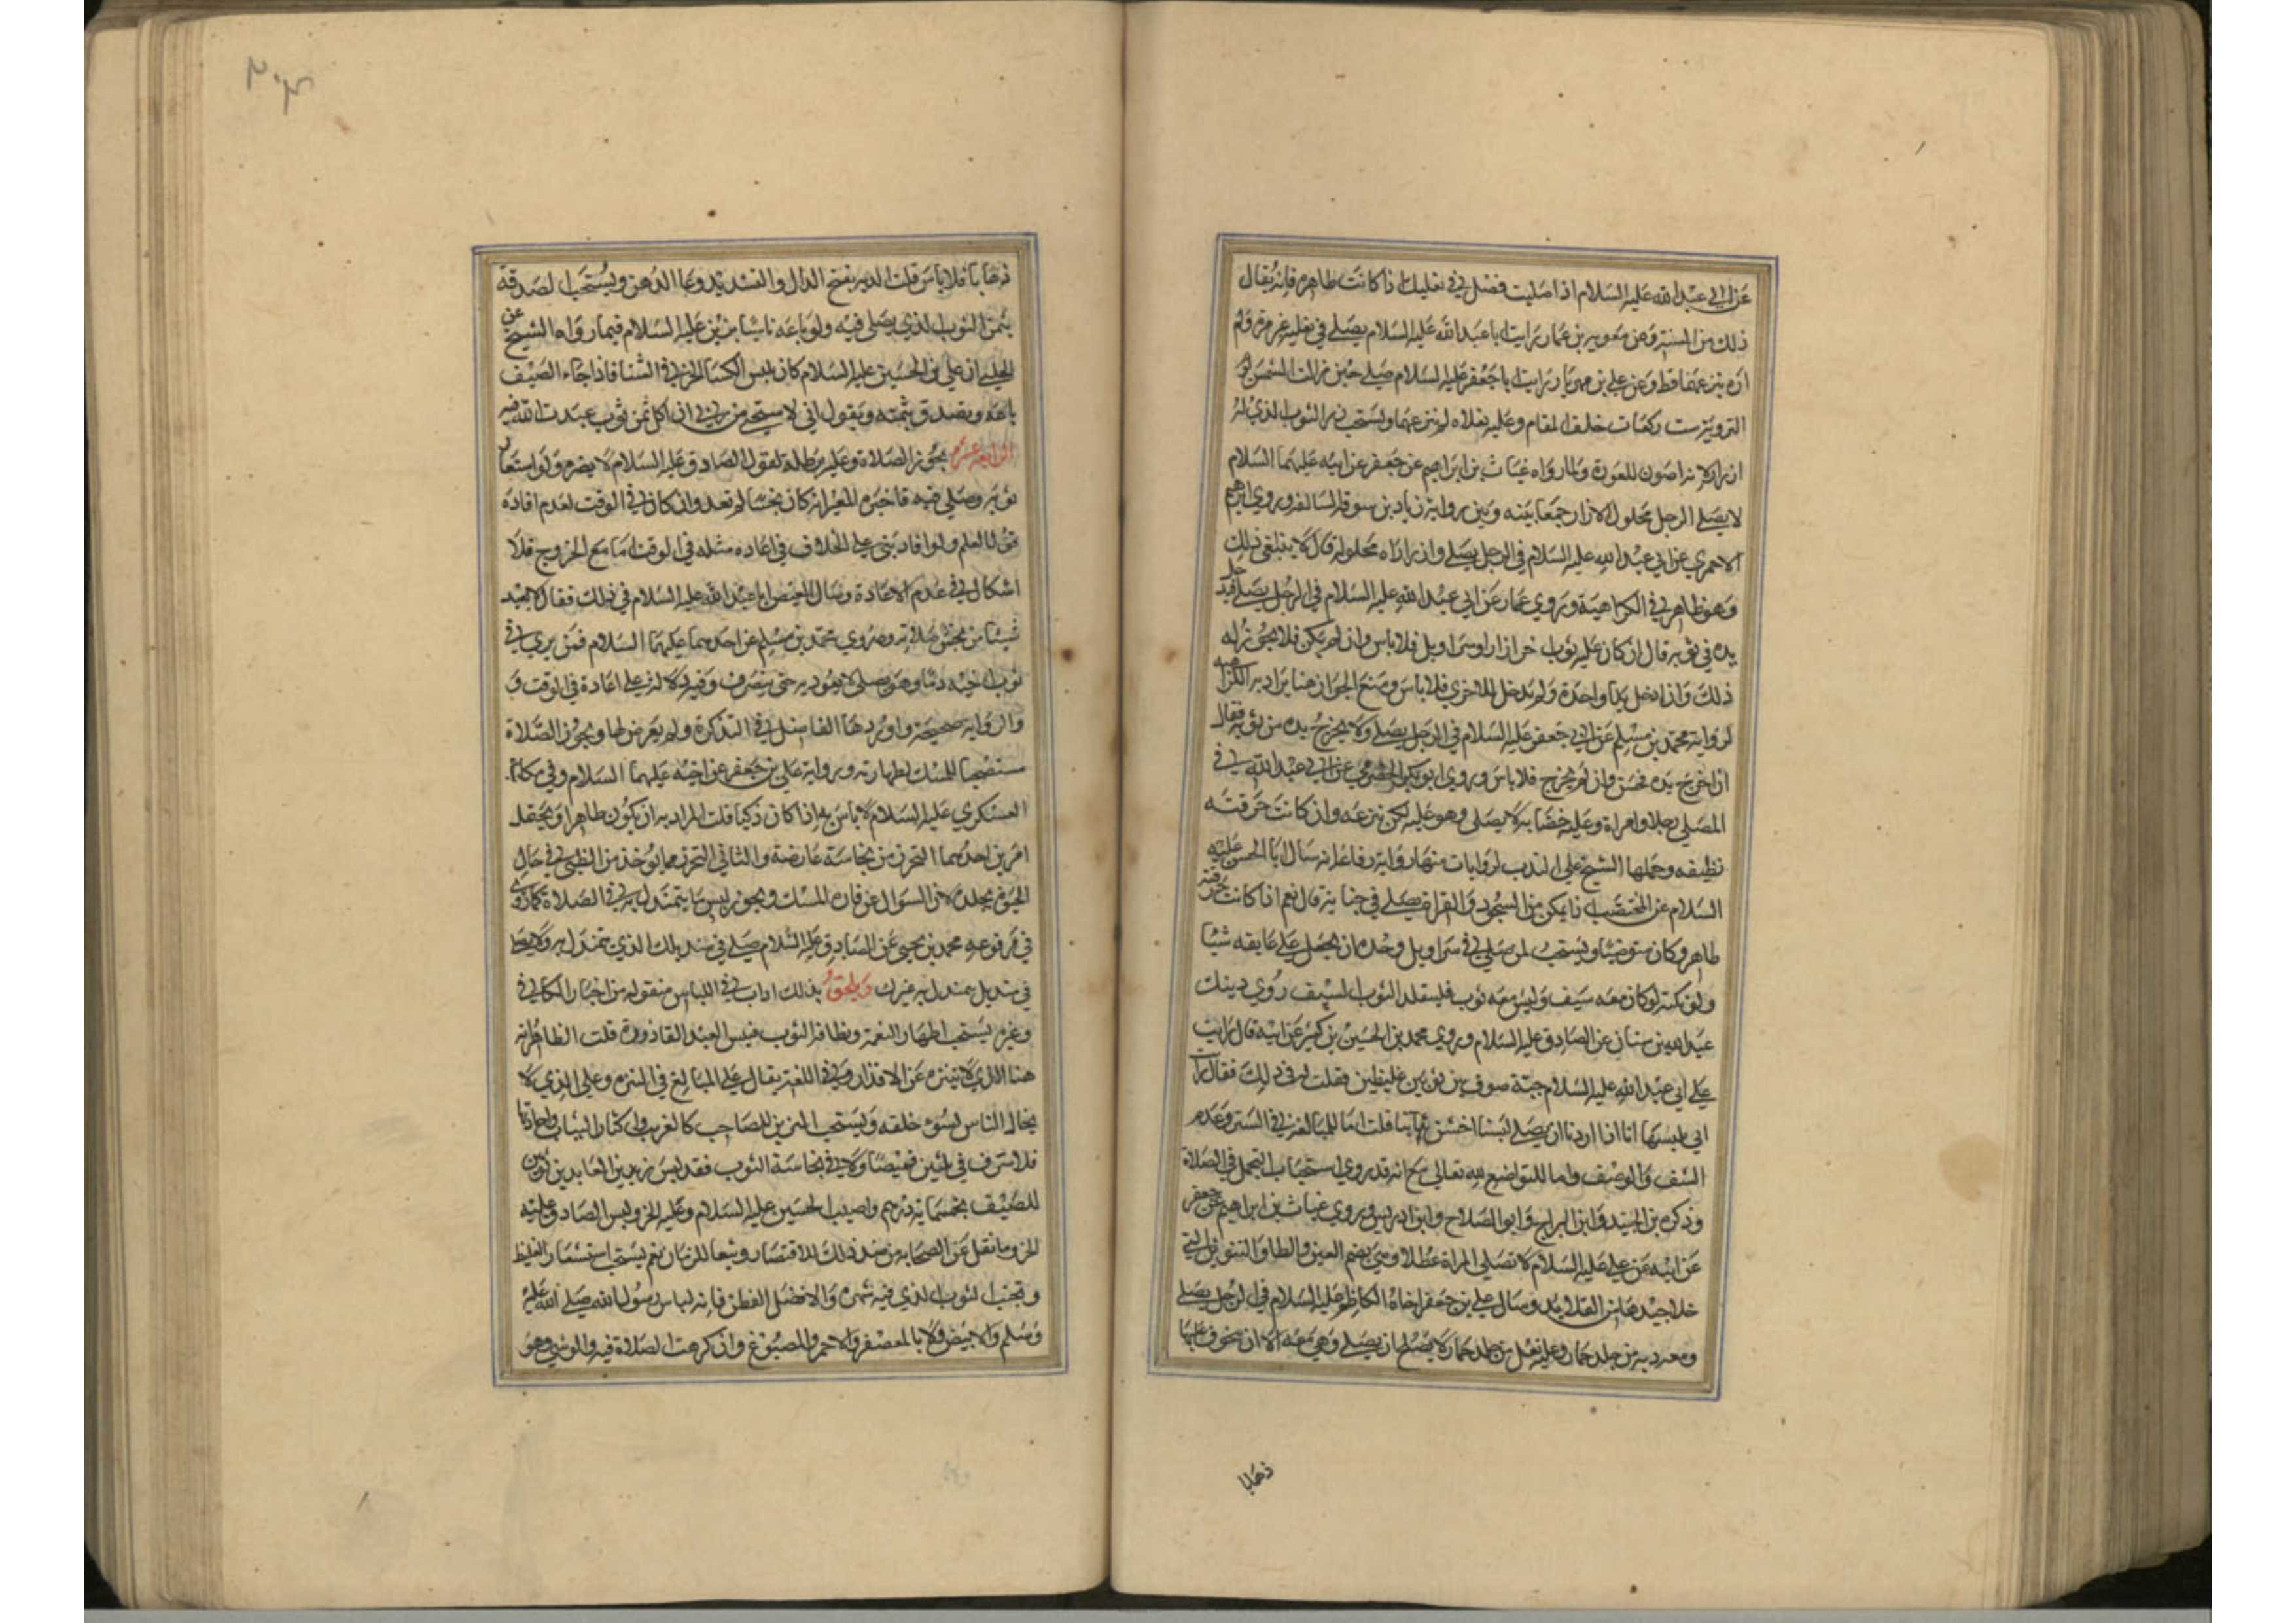 عن ابي عبد الله عليه السلام اذا صليت فصل في نعليك اذا كانت طاهرة فانه يقال
ذلك من السنة وعن معوية بن عمار رايت ابا عبد الله عليه السلام يصلي في نعليه غير مرة ولم
اره ينزعهما قط وعن علي بن مهزيار رايت ابا جعفر عليه السلام صلى حين زالت الشمس يوم
التروية ست ركعات خلف المقام وعليه نعلاه لم ينزعهما ويستحب زر الثوب الذي له
ازرار لانه اصون للعورة ولما رواه غياث بن ابراهيم عن جعفر عن ابيه عليهما السلام
لا يصلي الرجل محلول الازار جمعا بينه وبين رواية زياد بن سوقة السالفة وروى ابرهيم
الاحمري عن ابي عبد الله عليه السلام في الرجل يصلي وازراره محلولة قال لا ينبغي ذلك
وهو ظاهر في الكراهية وروى عمار عن ابي عبد الله عليه السلام في الرجل يصلي فيدخل
يده في ثوبه قال ان كان عليه ثوب اخر ازار او سراويل فلا باس وان لم يكن فلا يجوز له
ذلك وان ادخل يدا واحدة ولم يدخل الاخرى فلا باس ومنع الجواز هنا يراد به الكراهية
لرواية محمد بن مسلم عن ابي جعفر عليه السلام في الرجل يصلي ولا يخرج يده من ثوبه فقال
ان اخرج يده فحسن وان لم يخرج فلا باس وروى ابو بكر الحضرمي عن ابي عبد الله في
المصلي رجلا وامراة وعليه خضابه لا يصلي وهو عليه لكن ينزعه وان كانت خرقته
نظيفه وحملها الشيخ على الندب لروايات منها رواية رفاعة انه سال ابا الحسن عليه
السلام عن المختضب اذا تمكن من السجود والقراة يصلي في حنايه قال نعم اذا كانت خرقته
طاهرة وكان متوضيا ويستحب لمن صلى في سراويل وحده ان يجعل على عاتقه شيئا
ولو تكة ولو كان معه سيف وليس معه ثوب فليتقلد الثوب السيف روى ذينك
عبد الله بن سنان عن الصادق عليه السلام وروى محمد بن الحسين بن كثير عن ابيه قال رايت
على ابي عبد الله عليه السلام جبة صوف بين ثوبين غليظين فقلت له في ذلك فقال رايت
ابي يلبسها انا اذا اردنا ان نصلي لبسنا اخشن ثيابنا قلت اما للمبالغة في الستر وعدم
الشف والوصف واما للتواضع لله تعالى مع انه قد روى استحباب التجمل في الصلاة
وذكره بن الجنيد وابن البراج وابو الصلاح وابن ادريس وروى غياث بن ابراهيم عن جعفر
عن ابيه عن علي عليه السلام لا تصلي المراة عطلا وهي بضم العين والطا والتنوين التي
خلا جيدها من القلايد وسال علي بن جعفر اخاه الكاظم عليه السلام في الرجل يصلي
ومعه دبة من جلد حمار وعليه نعل من جلد حمار لا يصلح ان يصلي وهي معه الا ان يتخوف عليها
ذهابا
ذهابا فلا باس قلت الدبه بفتح الدال والتشديد وعا الدهن ويستحب الصدقة
بثمن الثوب الذي يصلي فيه ولو باعه تاسيا بزين عليه السلام فيما رواه الشيخ عن
الحلبي ان علي بن الحسين عليه السلام كان يلبس الكسا الخز في الشتا فاذا جاء الصيف
باعه وتصدق بثمنه ويقول اني لاستحي من ربي ان اكل ثمن ثوب عبدت الله فيه
الرابعة عشرة يجوز الصلاة وعليه برطلة لقول الصادق عليه السلام لا يضره ولو استعار
ثوبه وصلى فيه فاخبره المعير انه كان نجسا لم تعد وان كان في الوقت لعدم افادة
قوله العلم ولو افاد بني على الخلاف في اعاده مثله في الوقت اما مع الخروج فلا
اشكال في عدم الاعادة وسال العيص ابا عبد الله عليه السلام في ذلك فقال لا يعيد
شيئا من صلاته وروى محمد بن مسلم عن احدهما عليهما السلام فيمن يرى في
ثوب اخيه دما وهو يصلي لا يؤذنه حتى ينصرف وفيه دلالة على اعادة في الوقت و
والرواية صحيحة واوردها الفاضل في التذكرة ولم يعرض لها ويجوز الصلاة
مستصحبا للمسك لطهارته ورواية علي بن جعفر عن اخيه عليهما السلام وفي مكاتبة
العسكري عليه السلام لا باس به اذا كان ذكيا قلت المراد به ان يكون طاهرا ويحتمل
امرين احدهما التحرز من نجاسة عارضة والثاني التحرز مما يؤخذ من الظبي في حال
الحيوة بجلده لان السؤال عن فارة المسك ويجوز لبس ما يتمندل به في الصلاة كما روي
في مرفوعه محمد بن يحيى عن الصادق عليه السلام صلي في منديلك الذي تتمندل به ولا تصل
في منديل يتمندل به غيرك ويلحق بذلك اداب في اللباس منقوله من اخبار الكافي
وغيره يستحب اظهار النعمة ونظافة الثوب فبئس العبد القاذورة قلت الظاهر انه
هنا الذي لا يتنزه عن الاقذار وفي اللغة يقال على المبالغ في التنزه وعلى الذي لا
يخالط الناس لسوء خلقه ويستحب التزين للصاحب كالغريب واكثار الثياب واجادتها
فلا سرف في ثلثين قميصا ولا في نفاسة الثوب فقد لبس زين العابدين ثوبين
للصيف بخمسماية درهم واصيب الحسين عليه السلام وعليه الخز ولبس الصادق عليه
الخز وما نقل عن الصحابة من ضد ذلك للاقتصار وتبعا للزمان نعم يستحب استشعار الغليظ
وتجنب الثوب الذي فيه شهرة والافضل القطن فانه لباس رسول الله صلى الله عليه
وسلم والابيض ولا بالمعصفر والاحمر والمصبوغ وان كرهت الصلاة فيه والوشي وهو